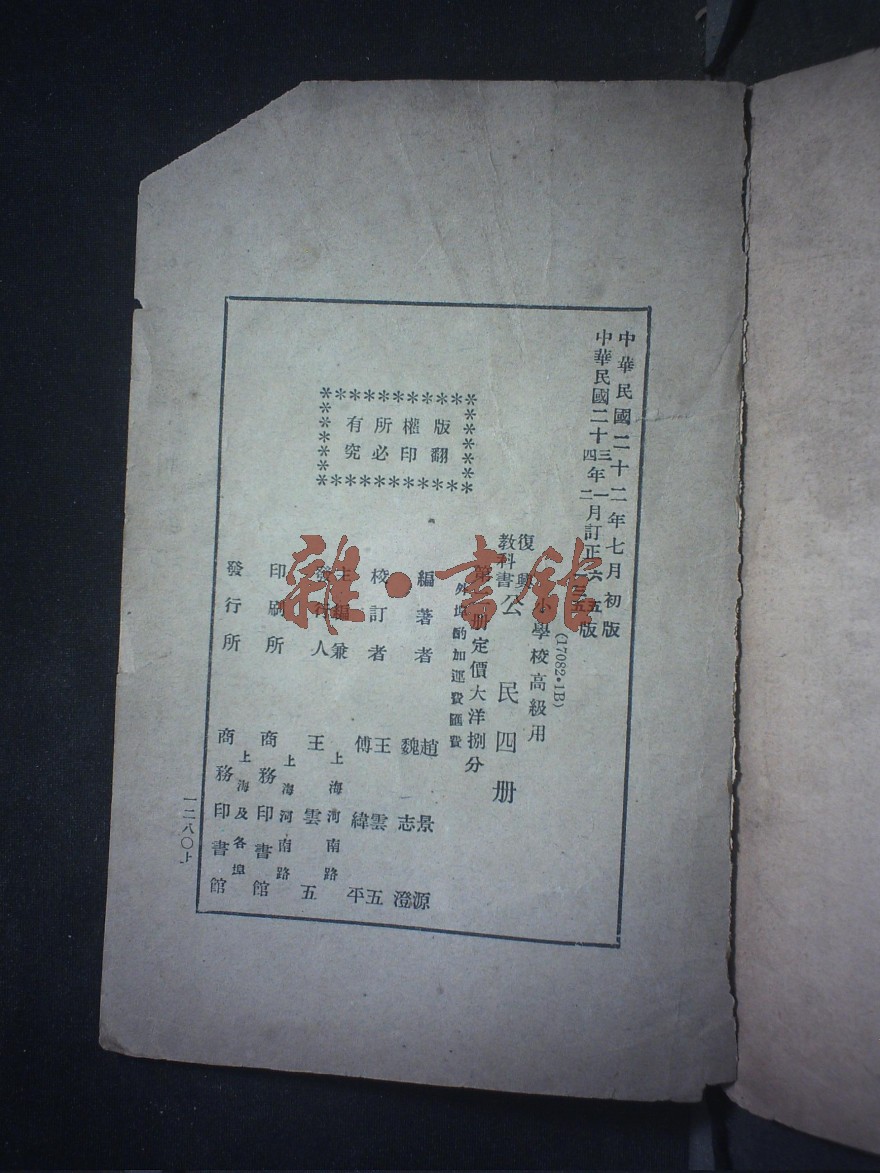 中華民國二十二年七月初版
中華民國二十三年一月訂正六五版
四二三五
(17082·1B)
小學校高級用
復興
教科書
公民四册
第册定價大洋捌分
外埠酌加運費匯費
版權所有
翻印必究
編著者
趙景源
魏志澄
校訂者
王雲五
傅緯平
主編兼
發行人
上海河南路
王雲五
印刷所
上海河南路
商務印書館
發行所
上海及各埠
商務印書館
一二八〇上
雜·書館